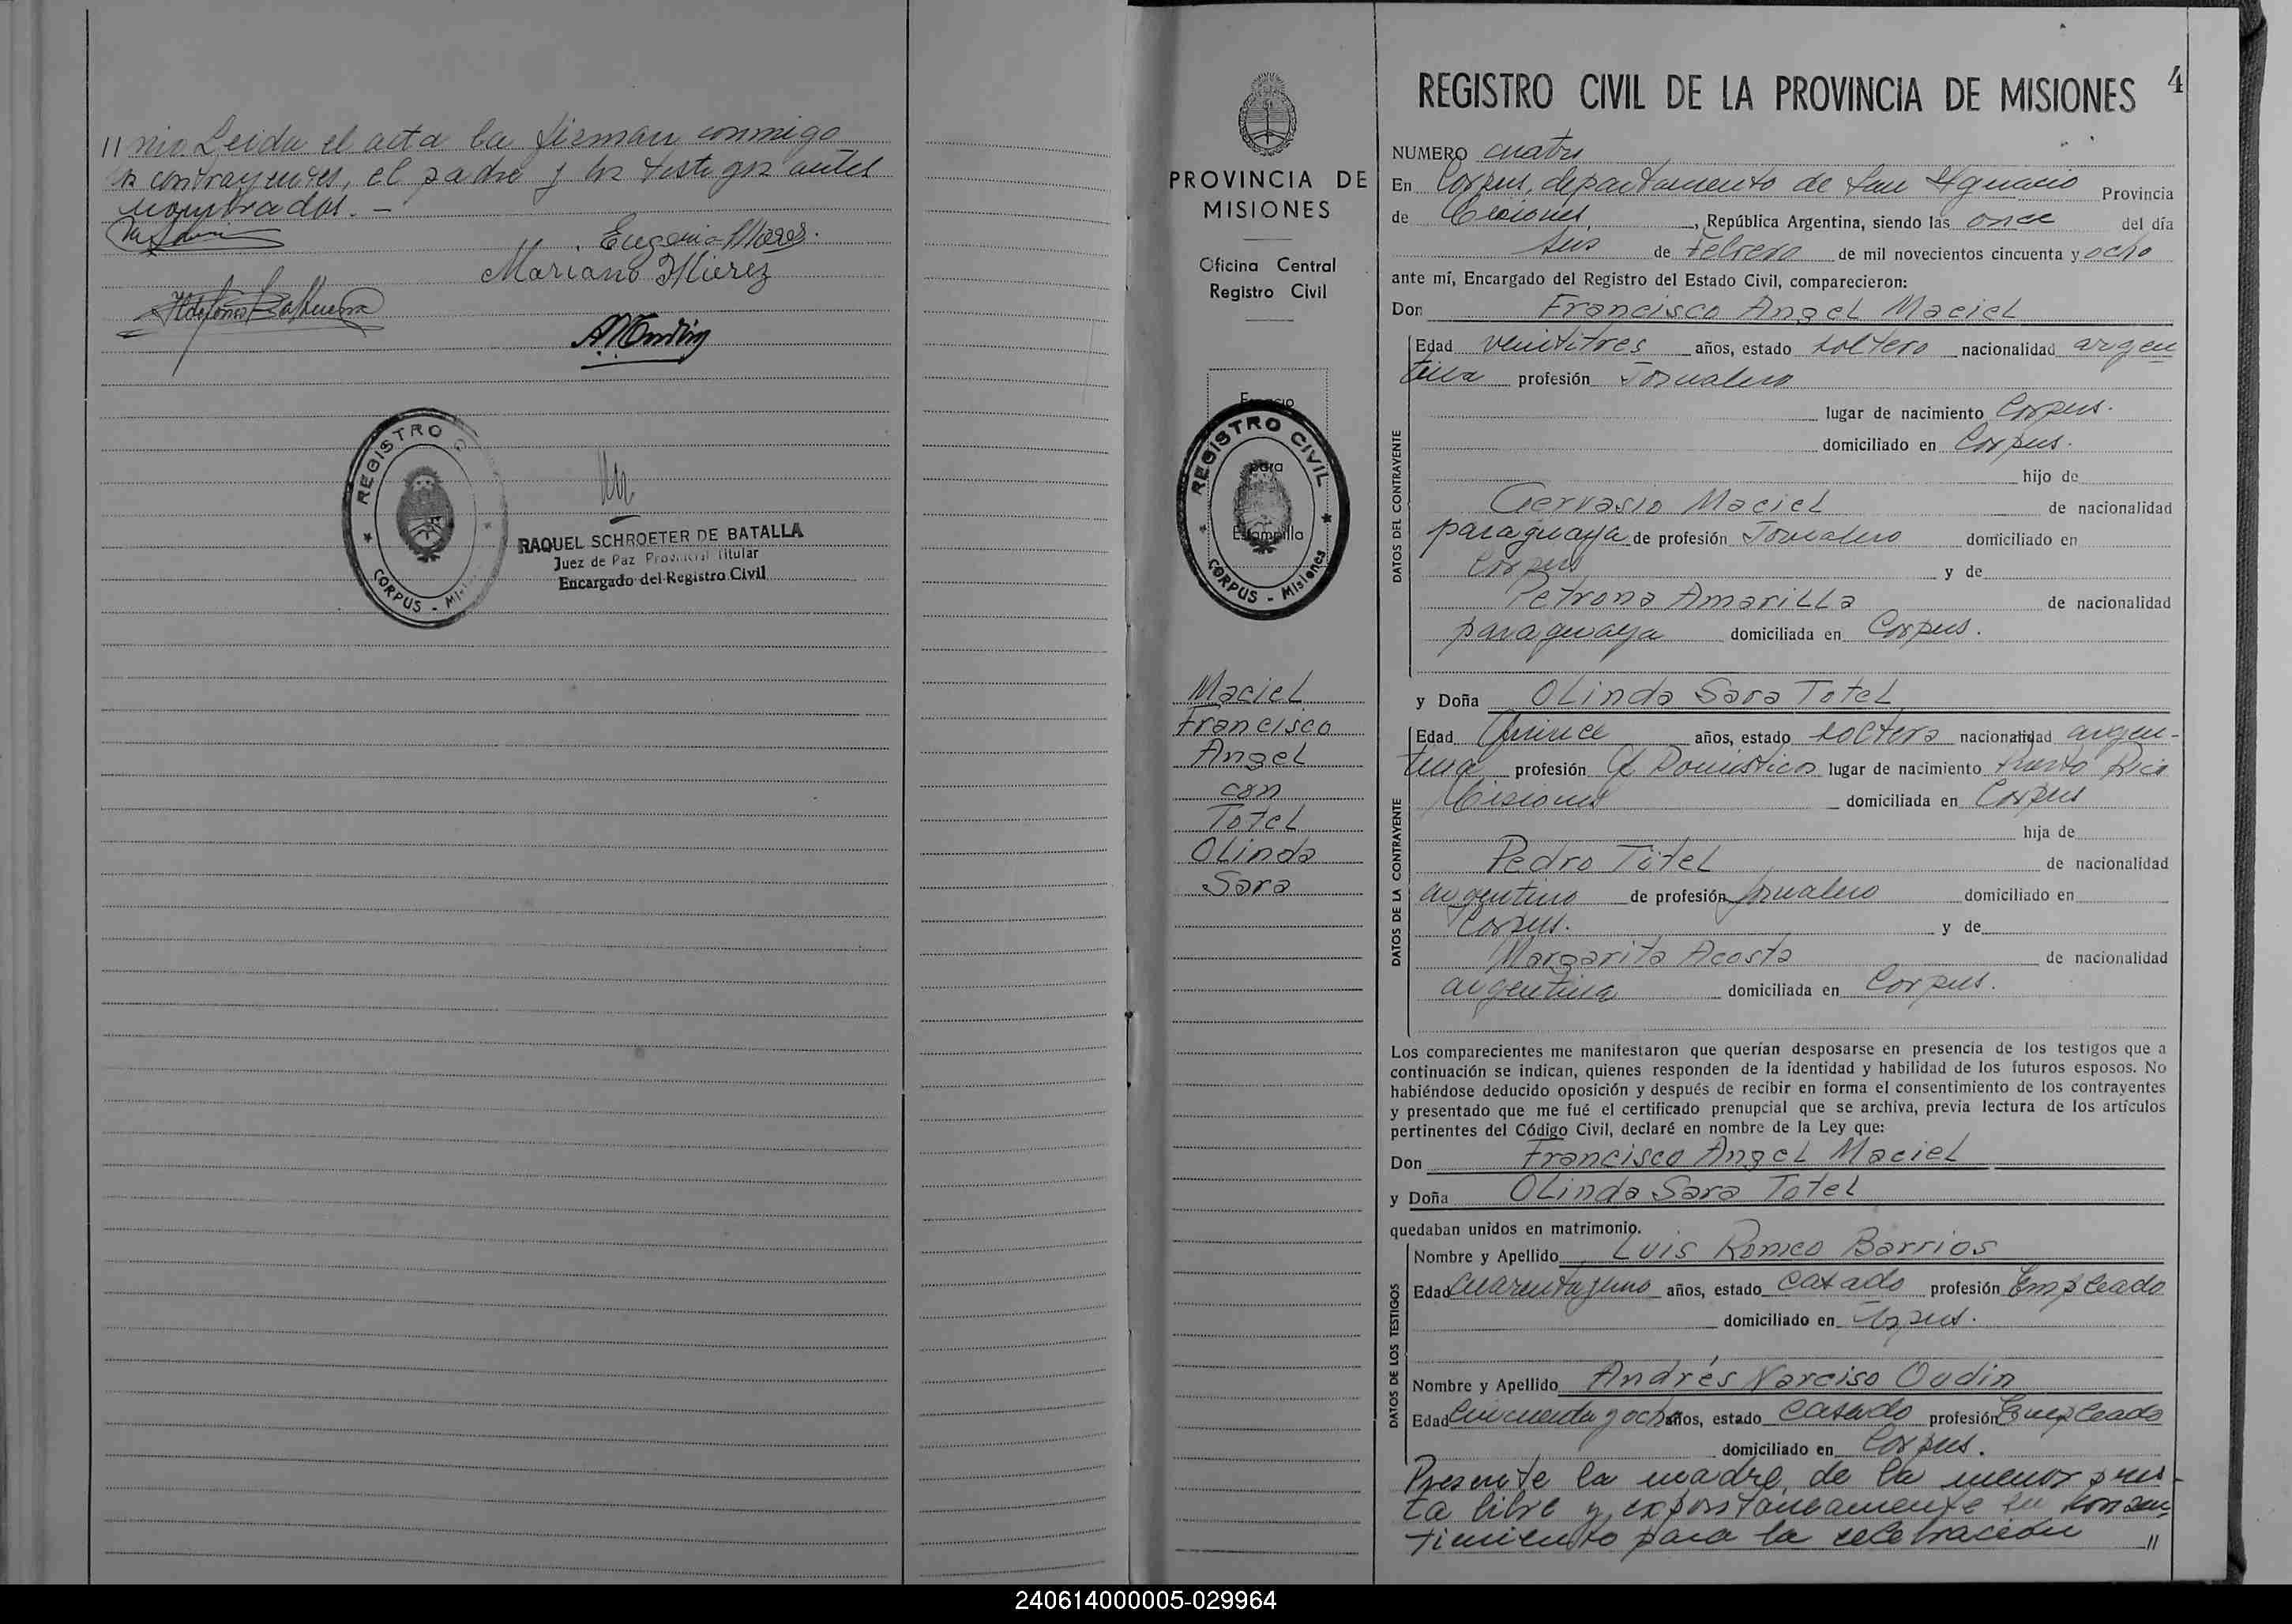 // nio. Leida el acta la firman conmigo
los contrayentes, el padre y los testigos antes
nombrados. -
Eugenio
Mariano
REGISTRO C
CORPUS - MI
RAQUEL SCHROETER DE BATALLA
Juez de Paz Provincial Titular
Encargado del Registro Civil
PROVINCIA DE
MISIONES
Oficina Central
Registro Civil
Espacio
para
Estampilla
REGISTRO CIVIL
CORPUS - Misiones
Maciel
Francisco
Angel
con
Totel
Olinda
Sara
REGISTRO CIVIL DE LA PROVINCIA DE MISIONES 4
NUMERO cuatro
En Corpus, departamento de San Ignacio Provincia
de Misiones, República Argentina, siendo las once del día
seis de Febrero de mil novecientos cincuenta y ocho
ante mí, Encargado del Registro del Estado Civil, comparecieron:
Don Francisco Angel Maciel
DATOS DEL CONTRAYENTE
Edad veintitres años, estado soltero nacionalidad argen
tina profesión Jornalero
lugar de nacimiento Corpus.
domiciliado en Corpus.
hijo de
Gervasio Maciel de nacionalidad
paraguaya de profesión Jornalero domiciliado en
Corpus y de
Petrona Amarilla de nacionalidad
paraguaya domiciliada en Corpus.
y Doña Olinda Sara Totel
DATOS DE LA CONTRAYENTE
Edad Quince años, estado soltera nacionalidad argen-
tina profesión Q. Domésticos lugar de nacimiento Puerto Rico
Misiones domiciliada en Corpus
hija de
Pedro Totel de nacionalidad
argentino de profesión Jornalero domiciliado en
Corpus. y de
Margarita Acosta de nacionalidad
argentina domiciliada en Corpus.
Los comparecientes me manifestaron que querían desposarse en presencia de los testigos que a
continuación se indican, quienes responden de la identidad y habilidad de los futuros esposos. No
habiéndose deducido oposición y después de recibir en forma el consentimiento de los contrayentes
y presentado que me fué el certificado prenupcial que se archiva, previa lectura de los artículos
pertinentes del Código Civil, declaré en nombre de la Ley que:
Don Francisco Angel Maciel
y Doña Olinda Sara Totel
quedaban unidos en matrimonio.
DATOS DE LOS TESTIGOS
Nombre y Apellido Luis Romeo Barrios
Edad cuarenta y uno años, estado casado profesión Empleado
domiciliado en Corpus.
Nombre y Apellido Andrés Narciso Oudin
Edad Cincuenta y ocho años, estado casado profesión Empleado
domiciliado en Corpus.
Presente la madre de la menor pres-
ta libre y expontáneamente su consen
timiento para la celebración //
240614000005-029964